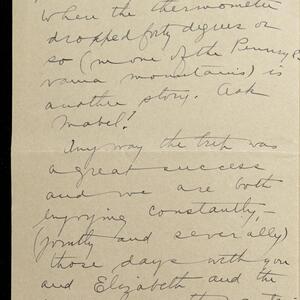 Where the thermometer
dropped forty degrees or
so (in one of the Pennsyl
vania mountains) is
another story. Ask
Mabel!
Anyway the trip was
a great success
and we are both
enjoying constantly,-
(jointly and severally)
those days with you
and Elizabeth and the